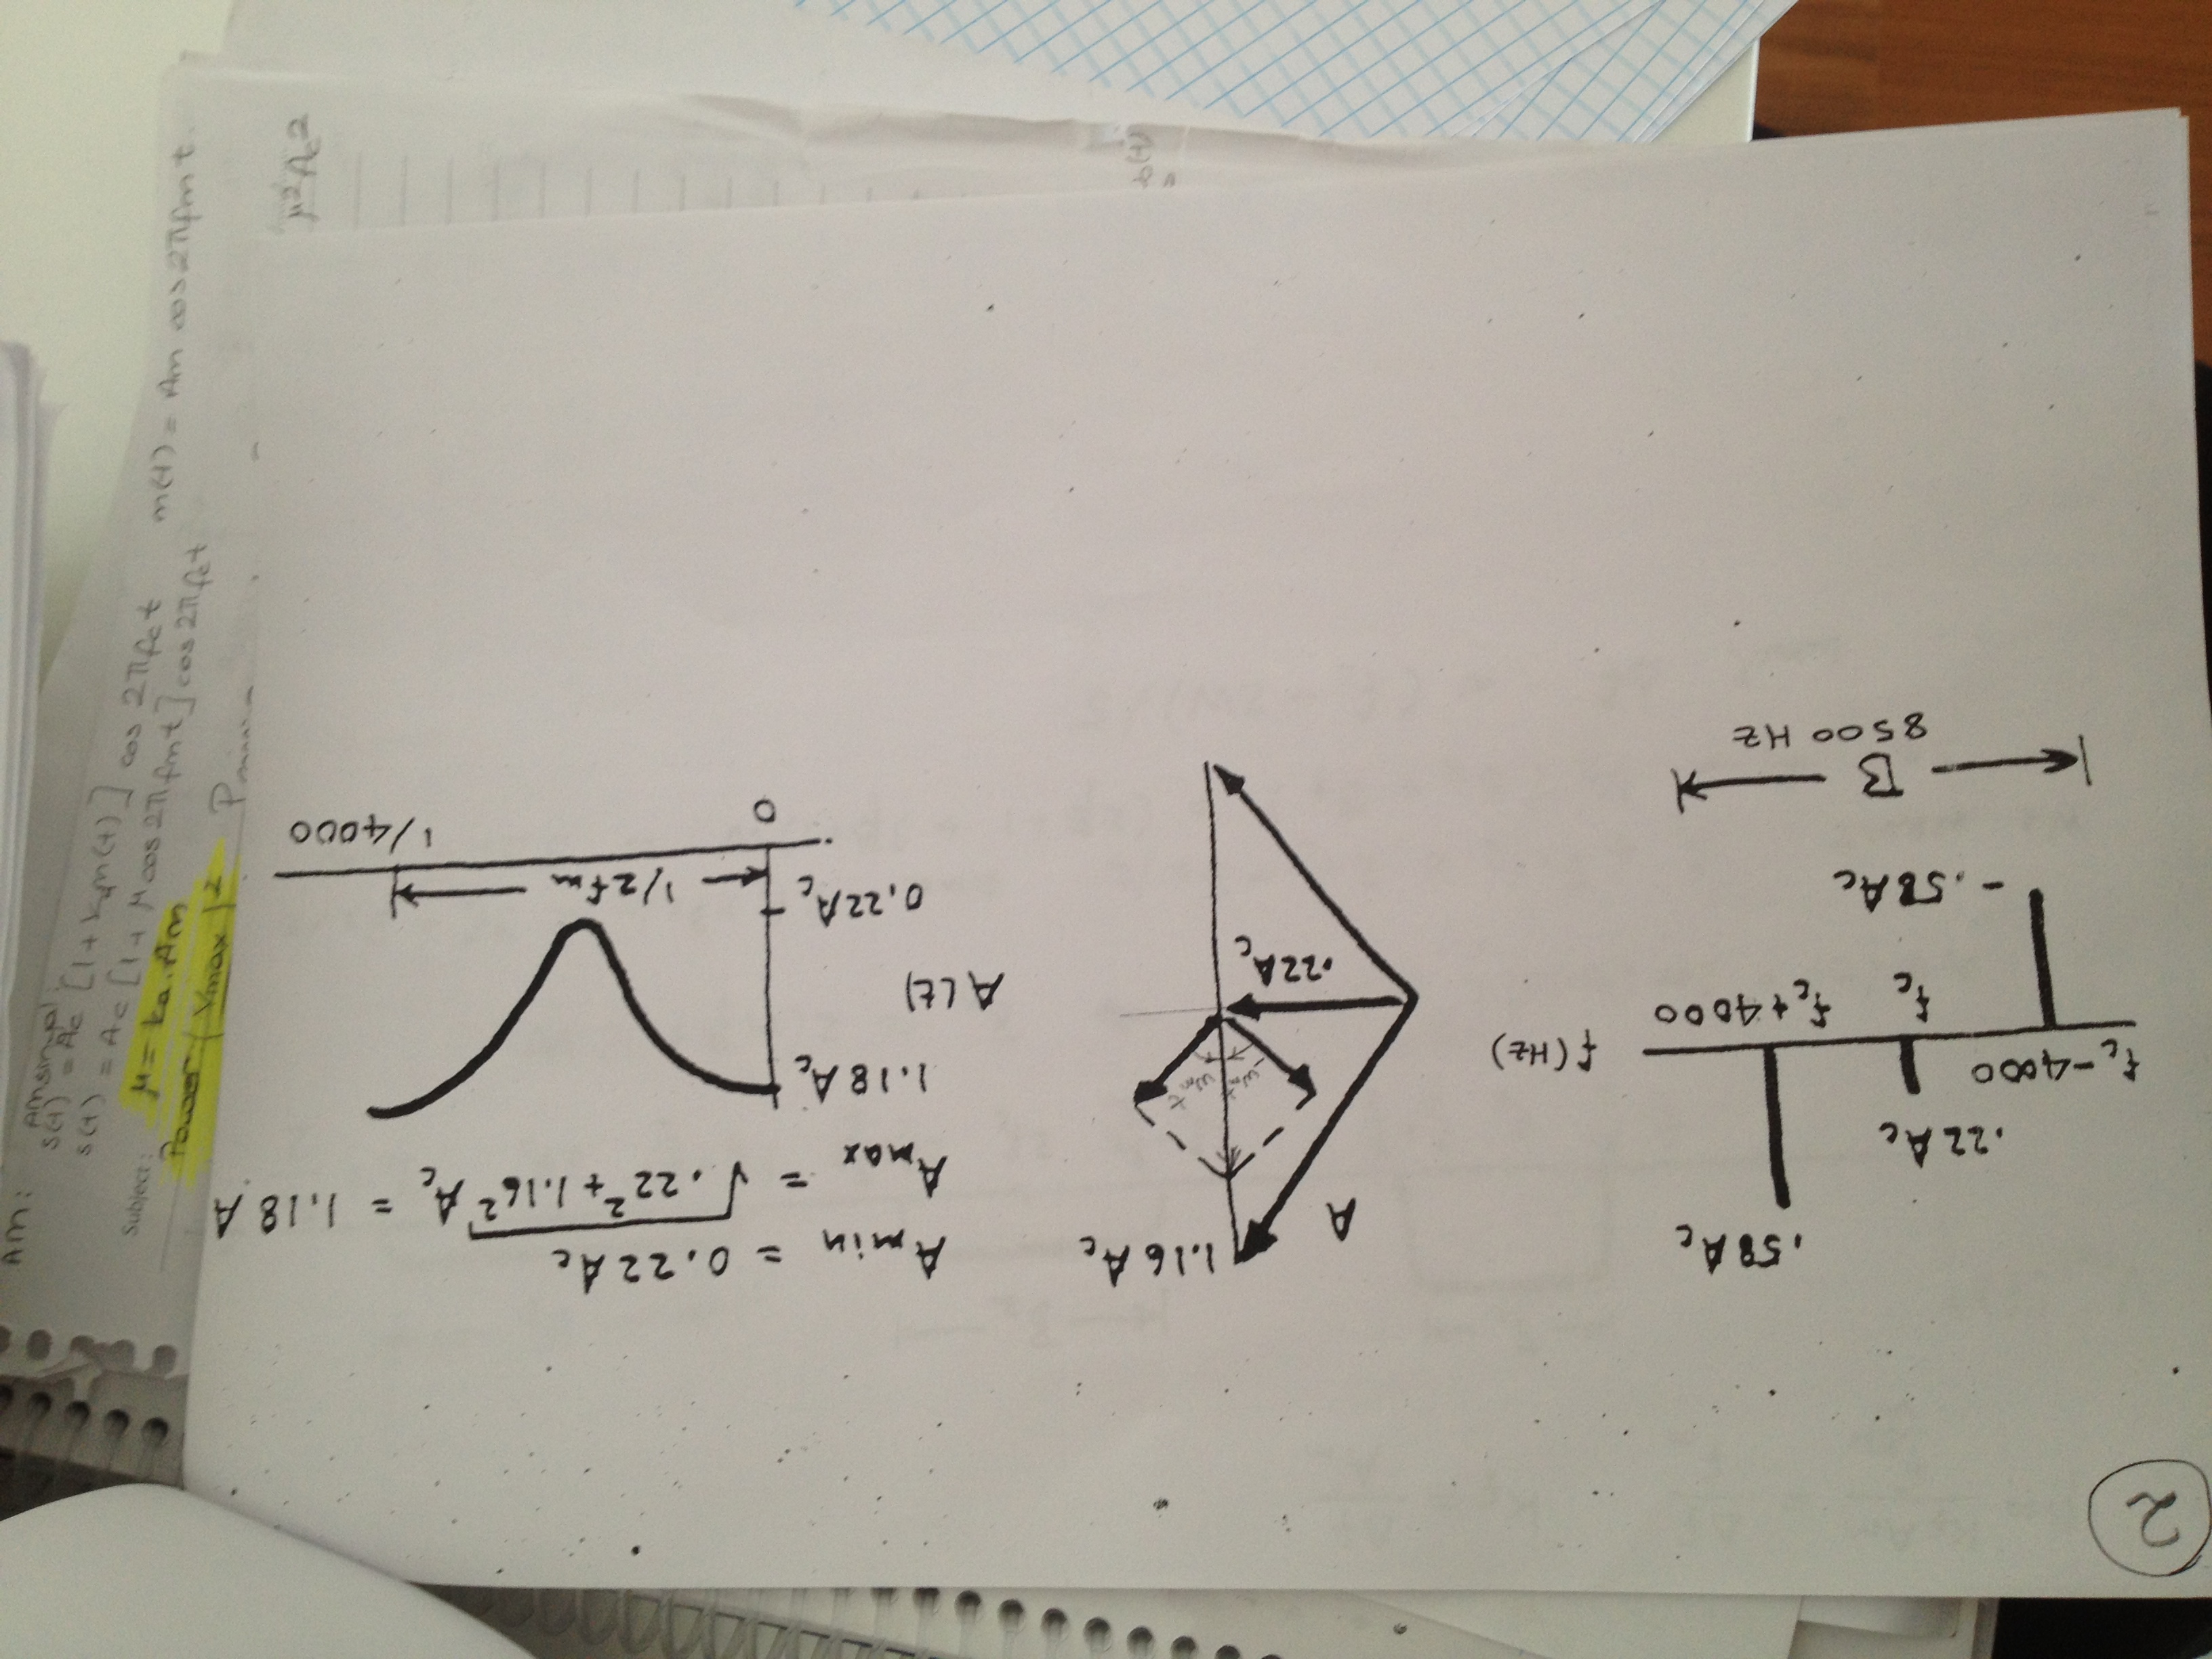 AM:
AM sinyal:
s(t) = Ac [1 + kam(t)] cos 2πfct
s(t) = Ac [1 + μ cos 2πfmt] cos 2πfct
m(t) = Am cos 2πfmt.
Subject:
μ = ka.Am
Power (Vmax)²
μ²Ac2
2
.58Ac
.22Ac
fc-4000
fc
fc+4000
f(Hz)
-.58Ac
B
8500 Hz
A
1.16Ac
.22Ac
Amin = 0.22Ac
Amax = √.22²+1.16² Ac = 1.18 A
1.18Ac
A(t)
0.22Ac
1/2fm
0
1/4000